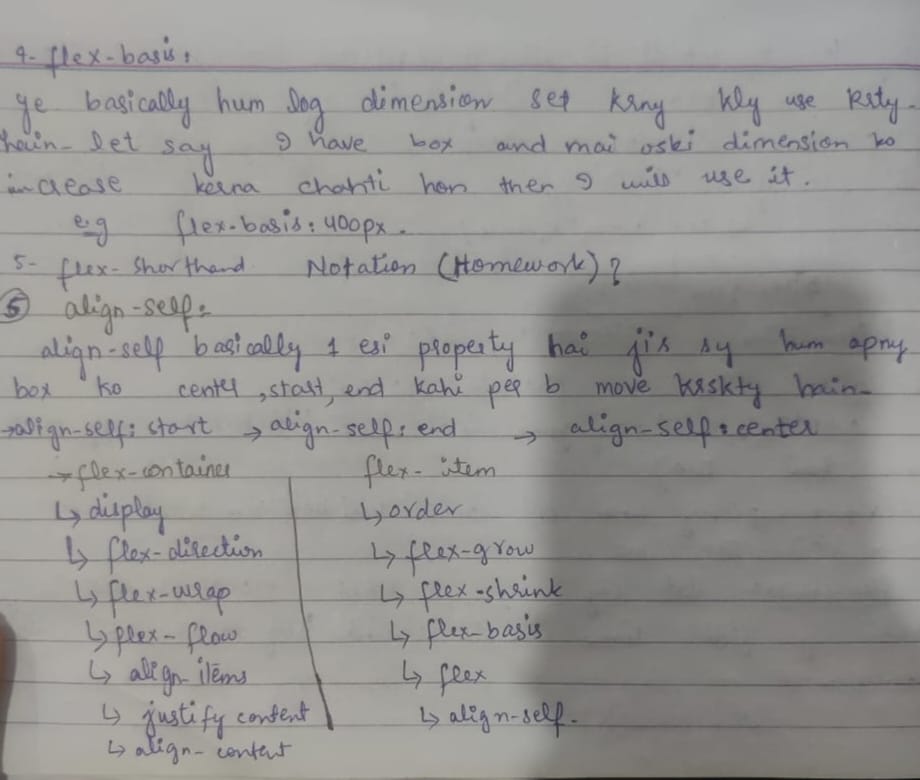 4- flex-basis:
ye basically hum log dimension set krny kly use krty
hain- let say I have box and mai oski dimension ko
increase kerna chahti hon then I will use it.
e.g flex-basis: 400px.
5- flex-shorthand Notation (Homework)?
5 align-self:
align-self basically 1 esi property hai jis sy hum apny
box ko center, start, end kahi per b move krskty hain-
→align-self: start → align-self: end → align-self: center
→ flex-container flex-item
↳ display ↳ order
↳ flex-direction ↳ flex-grow
↳ flex-wrap ↳ flex-shrink
↳ flex-flow ↳ flex-basis
↳ align-items ↳ flex
↳ justify content ↳ align-self.
↳ align-content